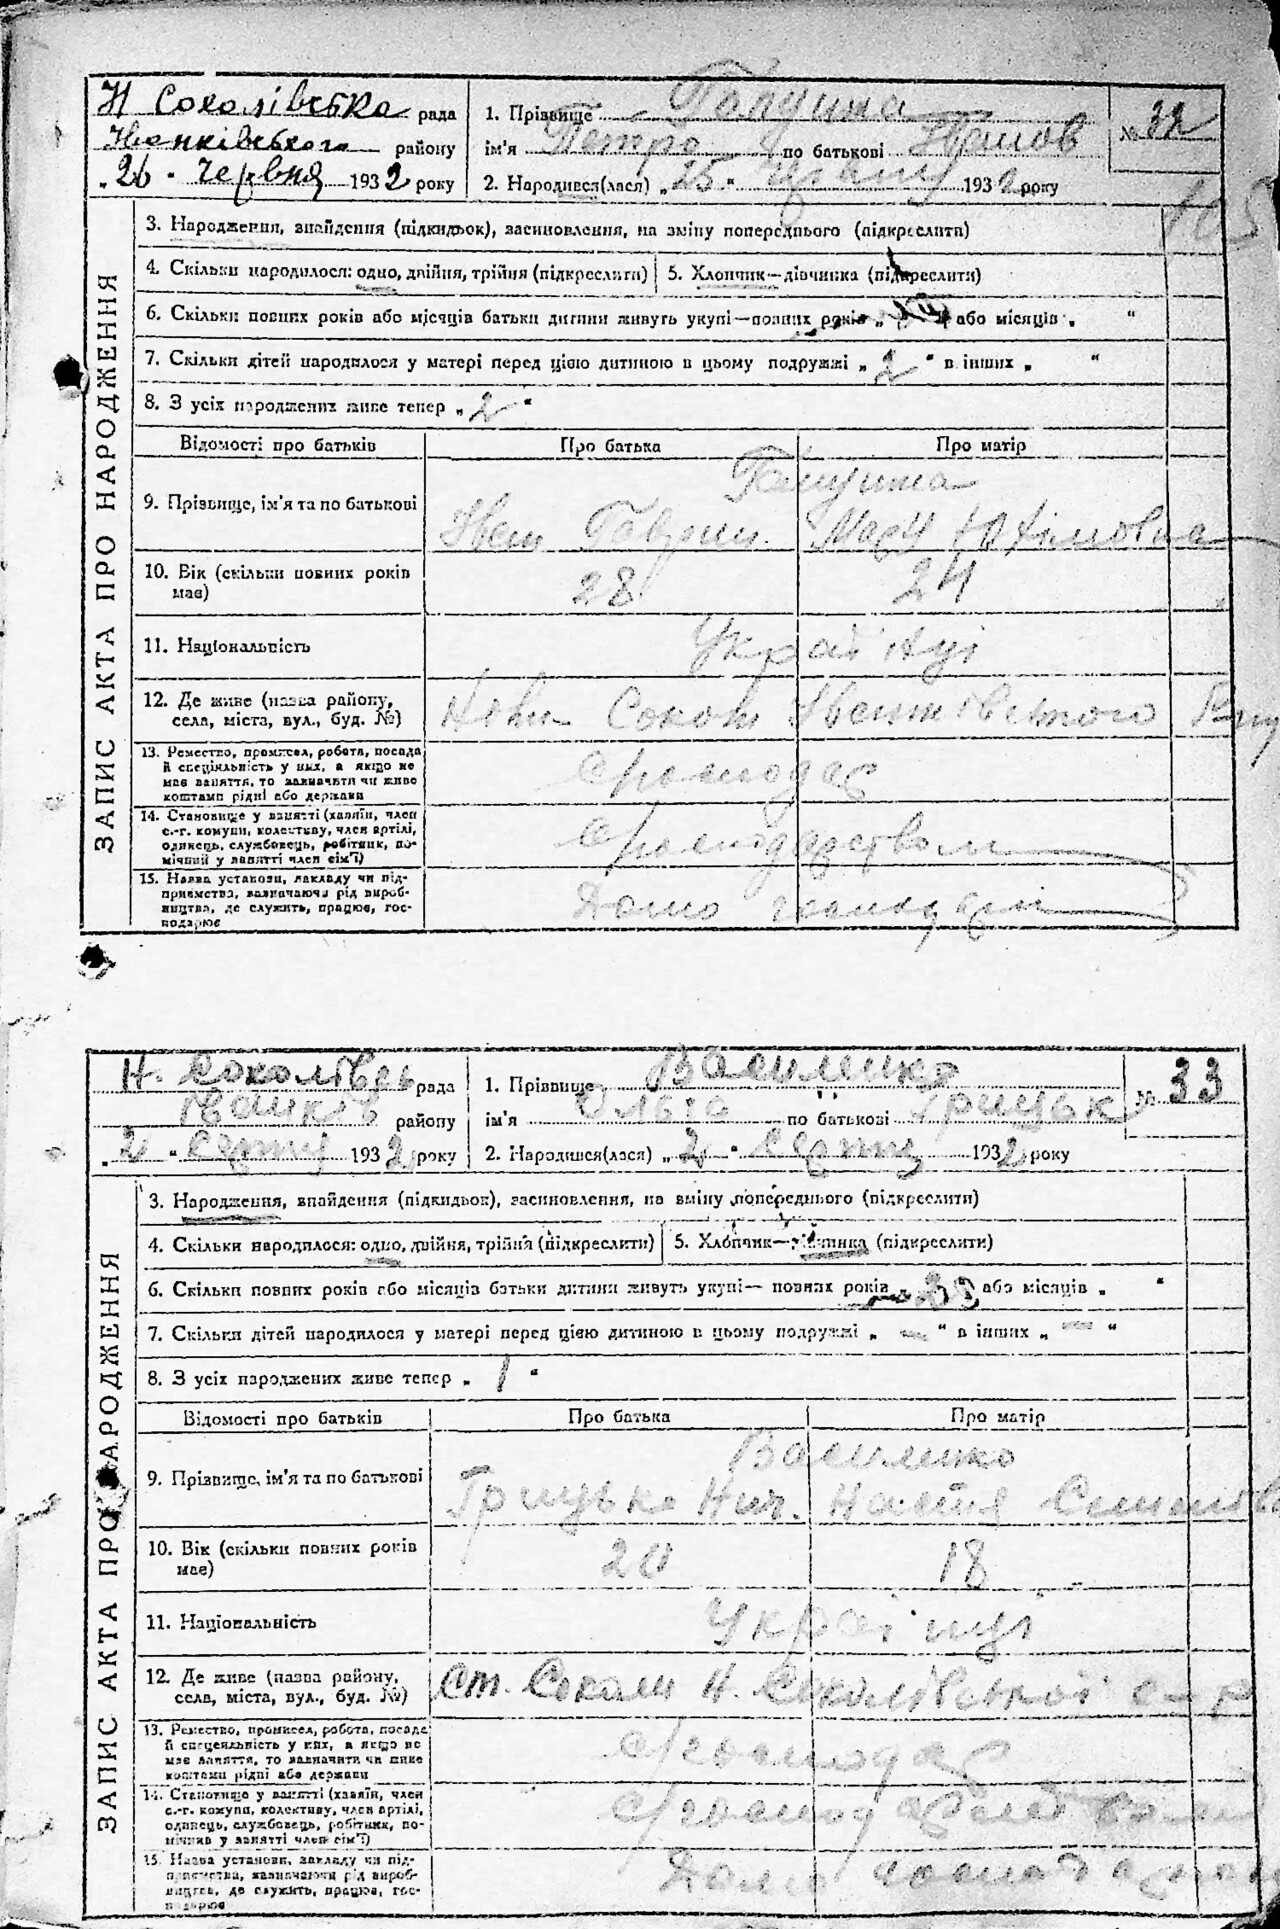 Н Соколівська рада
Іванківського району
„26“ Червня 1932 року
1. Прізвище
ім'я Петро по батькові Іванов
2. Народився(лася) „25“ 1932 року
№ 32
105
ЗАПИС АКТА ПРО НАРОДЖЕННЯ
3. Народження, знайдення (підкидьок), засиновлення, на зміну попереднього (підкреслити)
4. Скільки народилося: одно, двійня, трійня (підкреслити)
5. Хлопчик—дівчинка (підкреслити)
6. Скільки повних років або місяців батьки дитини живуть укупі—повних років „ або місяців „ “
7. Скільки дітей народилося у матері перед цією дитиною в цьому подружжі „2“ в інших „ “
8. З усіх народжених живе тепер „2“
Відомості про батьків Про батька Про матір
9. Прізвище, ім'я та по батькові
Іван Гаврил. Марія Юхімовна
10. Вік (скільки повних років має) 28 24
11. Національність Українці
12. Де живе (назва району, села, міста, вул., буд. №)
Нови Сокол Іванківського
13. Ремество, промисел, робота, посада й спеціяльність у них, а якщо не має заняття, то зазначити чи живе коштами рідні або держави
с/господар
14. Становище у занятті (хазяїн, член с.-г. комуни, колективу, член артілі, одинець, службовець, робітник, помічний у занятті член сім'ї)
с/господарством
15. Назва установи, закладу чи підприємства, зазначаючи рід виробництва, де служить, працює, господарює
Дома господарі
Н. Соколівсь рада
Іванків району
„2“ серпня 1932 року
1. Прізвище Василенко
ім'я Ольга по батькові Грицьк
2. Народився(лася) „2“ серпня 1932 року
№ 33
ЗАПИС АКТА ПРО НАРОДЖЕННЯ
3. Народження, знайдення (підкидьок), засиновлення, на зміну попереднього (підкреслити)
4. Скільки народилося: одно, двійня, трійня (підкреслити)
5. Хлопчик—дівчинка (підкреслити)
6. Скільки повних років або місяців батьки дитини живуть укупі— повних років „2 або місяців „ “
7. Скільки дітей народилося у матері перед цією дитиною в цьому подружжі „ — “ в інших „ — “
8. З усіх народжених живе тепер „1“
Відомості про батьків Про батька Про матір
Василенко
9. Прізвище, ім'я та по батькові
Грицько Нич. Настя
10. Вік (скільки повних років має) 20 18
11. Національність Українці
12. Де живе (назва району, села, міста, вул., буд. №)
Ст. Соколи Н. Соколівської с-р
13. Ремество, промисел, робота, посада й спеціяльність у них, а якщо не має заняття, то зазначити чи живе коштами рідні або держави
с/господар
14. Становище у занятті (хазяїн, член с.-г. комуни, колективу, член артілі, одинець, службовець, робітник, помічник у занятті член сім'ї)
15. Назва установи, закладу чи підприємства, зазначаючи рід виробництва, де служить, працює, господарює
Дома